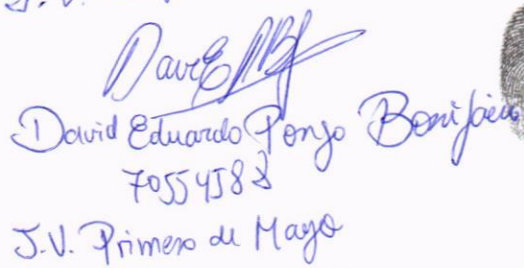 J. V.
David
David Eduardo Pongo Bonifacio
70554582
J.V. Primero de Mayo